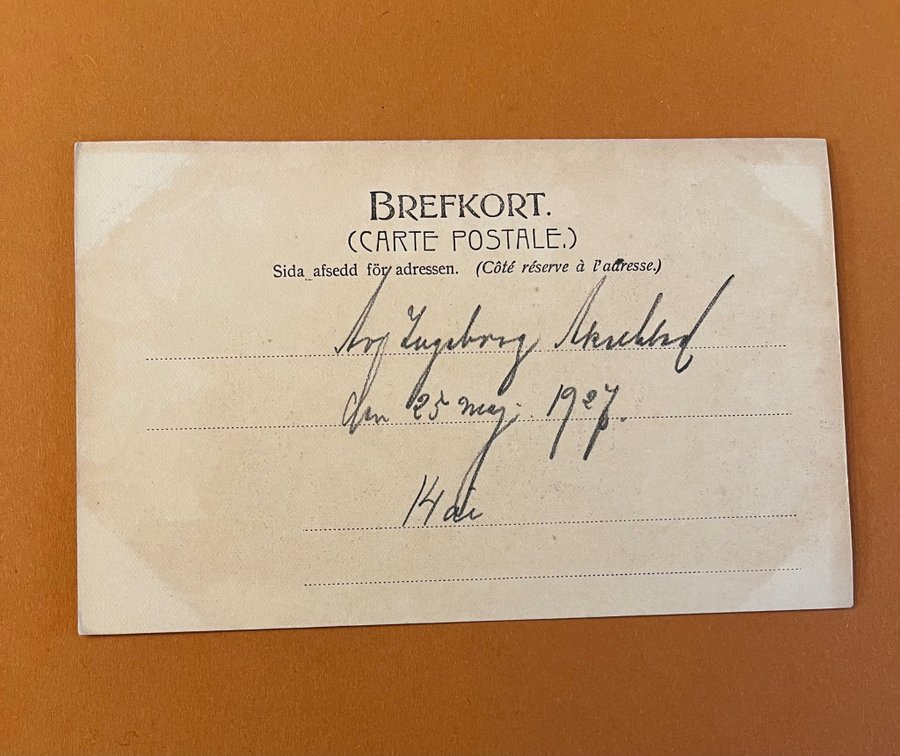 BREFKORT.
(CARTE POSTALE.)
Sida afsedd för adressen. (Côté réserve à l'adresse.)
Ingeborg
den 25 maj 1927.
14